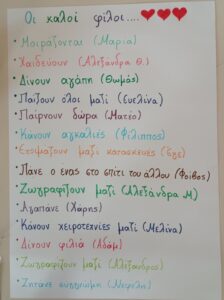 Οι καλοί φίλοι....
Μοιράζονται (Μαρία)
Χαϊδεύουν (Αλεξάνδρα Θ.)
Δίνουν αγάπη (Θωμάς)
Παίζουν όλοι μαζί (Ευελίνα)
Παίρνουν δώρα (Ματέο)
Κάνουν αγκαλιές (Φίλιππος)
Ετοιμάζουν μαζί κατασκευές (Έγε)
Πάνε ο ένας στο σπίτι του άλλου (Φοίβος)
Ζωγραφίζουν μαζί (Αλεξάνδρα Μ)
Αγαπάνε (Χάρης)
Κάνουν χειροτεχνίες μαζί (Μελίνα)
Δίνουν φιλιά (Αδάμ)
Ζωγραφίζουν μαζί (Αλέξανδρος)
Ζητάνε συγγνώμη (Νεφέλη)